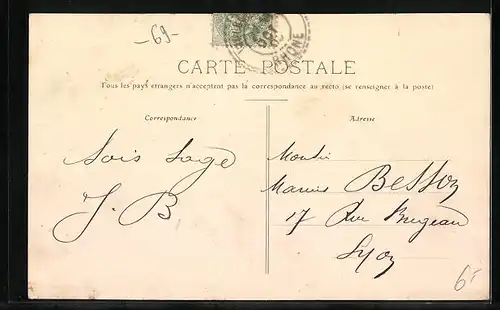 -69-
RHONE
CARTE POSTALE
Tous les pays étrangers n'acceptent pas la correspondance au recto (se renseigner à la poste)
Correspondance
Adresse
Sois Sage
J. B
Marius Besson
17 Rue Bugeau
Lyon
6-